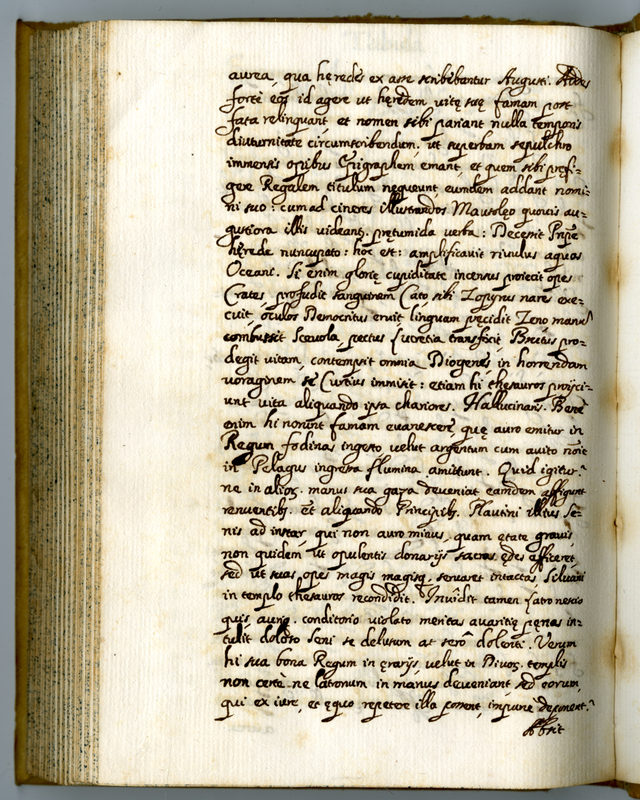 aurea, qua hęredes ex asse scribebantur Augusti. Addes
forte eos id agere ut hęredem vitę suę famam post
fata relinquant et nomen sibi pariant nulla temporis
diuturnitate circumscribendum. ut superbam sepulchro
immensis opibus Epigraphem emant, et quem sibi pręfi=
gere Regalem titulum nequeunt eumdem addant nomi=
ni suo: cum ad cineres illustrandos Mausoleo quovis au=
gustiora illis videant, prętumida verba: Decessit Prĩpe
hęrede nuncupato: hoc est: amplificavit rivulus aquas
Oceani. Si enim glorię cupiditate incensus proiecit opes
Crates, profudit sanguinem Cato sibi Zopyrus nares exe=
cuit, oculos Democritus eruit, linguam pręcidit Zeno manũ
combussit Scævola, pectus Lucretia transfixit Brutus pro=
degit vitam, contempsit omnia Diogenes in horrendam
voraginem se Curtius immisit: etiam hi thesauros proijci=
unt vita aliquando ipsa chariores. Hallucinaris. Bene
enim hi norunt famam evanescere quę auro emitur in
Regum fodinas ingesto velut argentum cum avito noĩe
in Pelagus ingressa flumina amittunt. Quid igitur?
ne in alios manus sua gaza deveniat eamdem affigunt
renuentibus et aliquando Principibus. Plautini illius Se=
nis ad instar qui non auro minus, quam ętate gravis
non quidem ut opulentis donarijs sacras ędes afficeret,
sed ut suas opes magis magisq. servaret intactas, Silvani
in templo thesauros recondidit. Invidit tamen Latro nescio
quis auro. conditorio violato meritas avaritię pęnas in=
tulit doloso seni se delusum at sero dolenti. Verum
hi sua bona Regum in ęrarijs velut in Divor. templis
non certe ne latronum in manus deveniant sed eorum,
qui ex iure, et ęquo repetere illa possent, impune deponent.
Absit